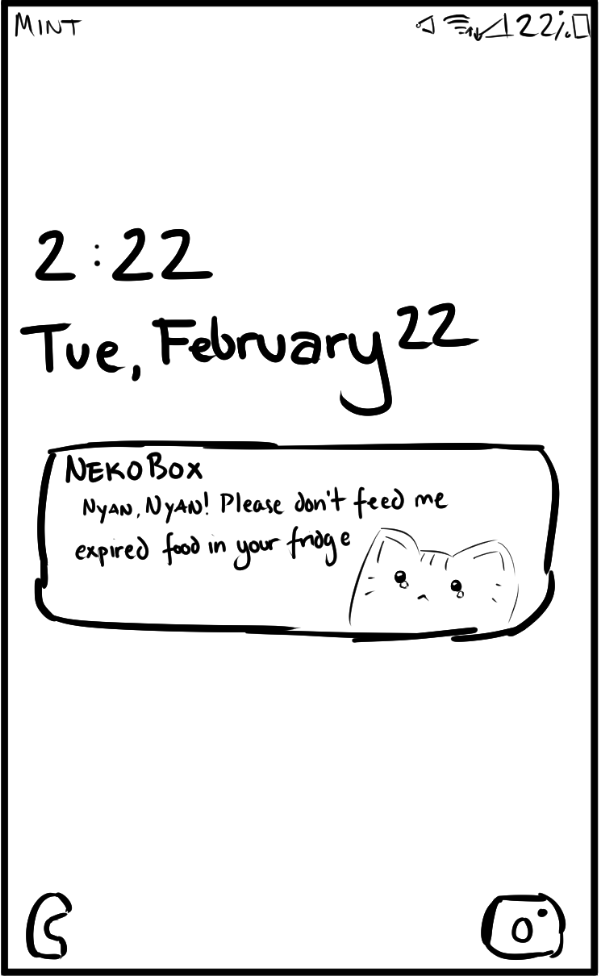 MINT 22%
2:22
Tue, February 22
NEKOBOX
NYAN, NYAN! Please don't feed me
expired food in your fridge